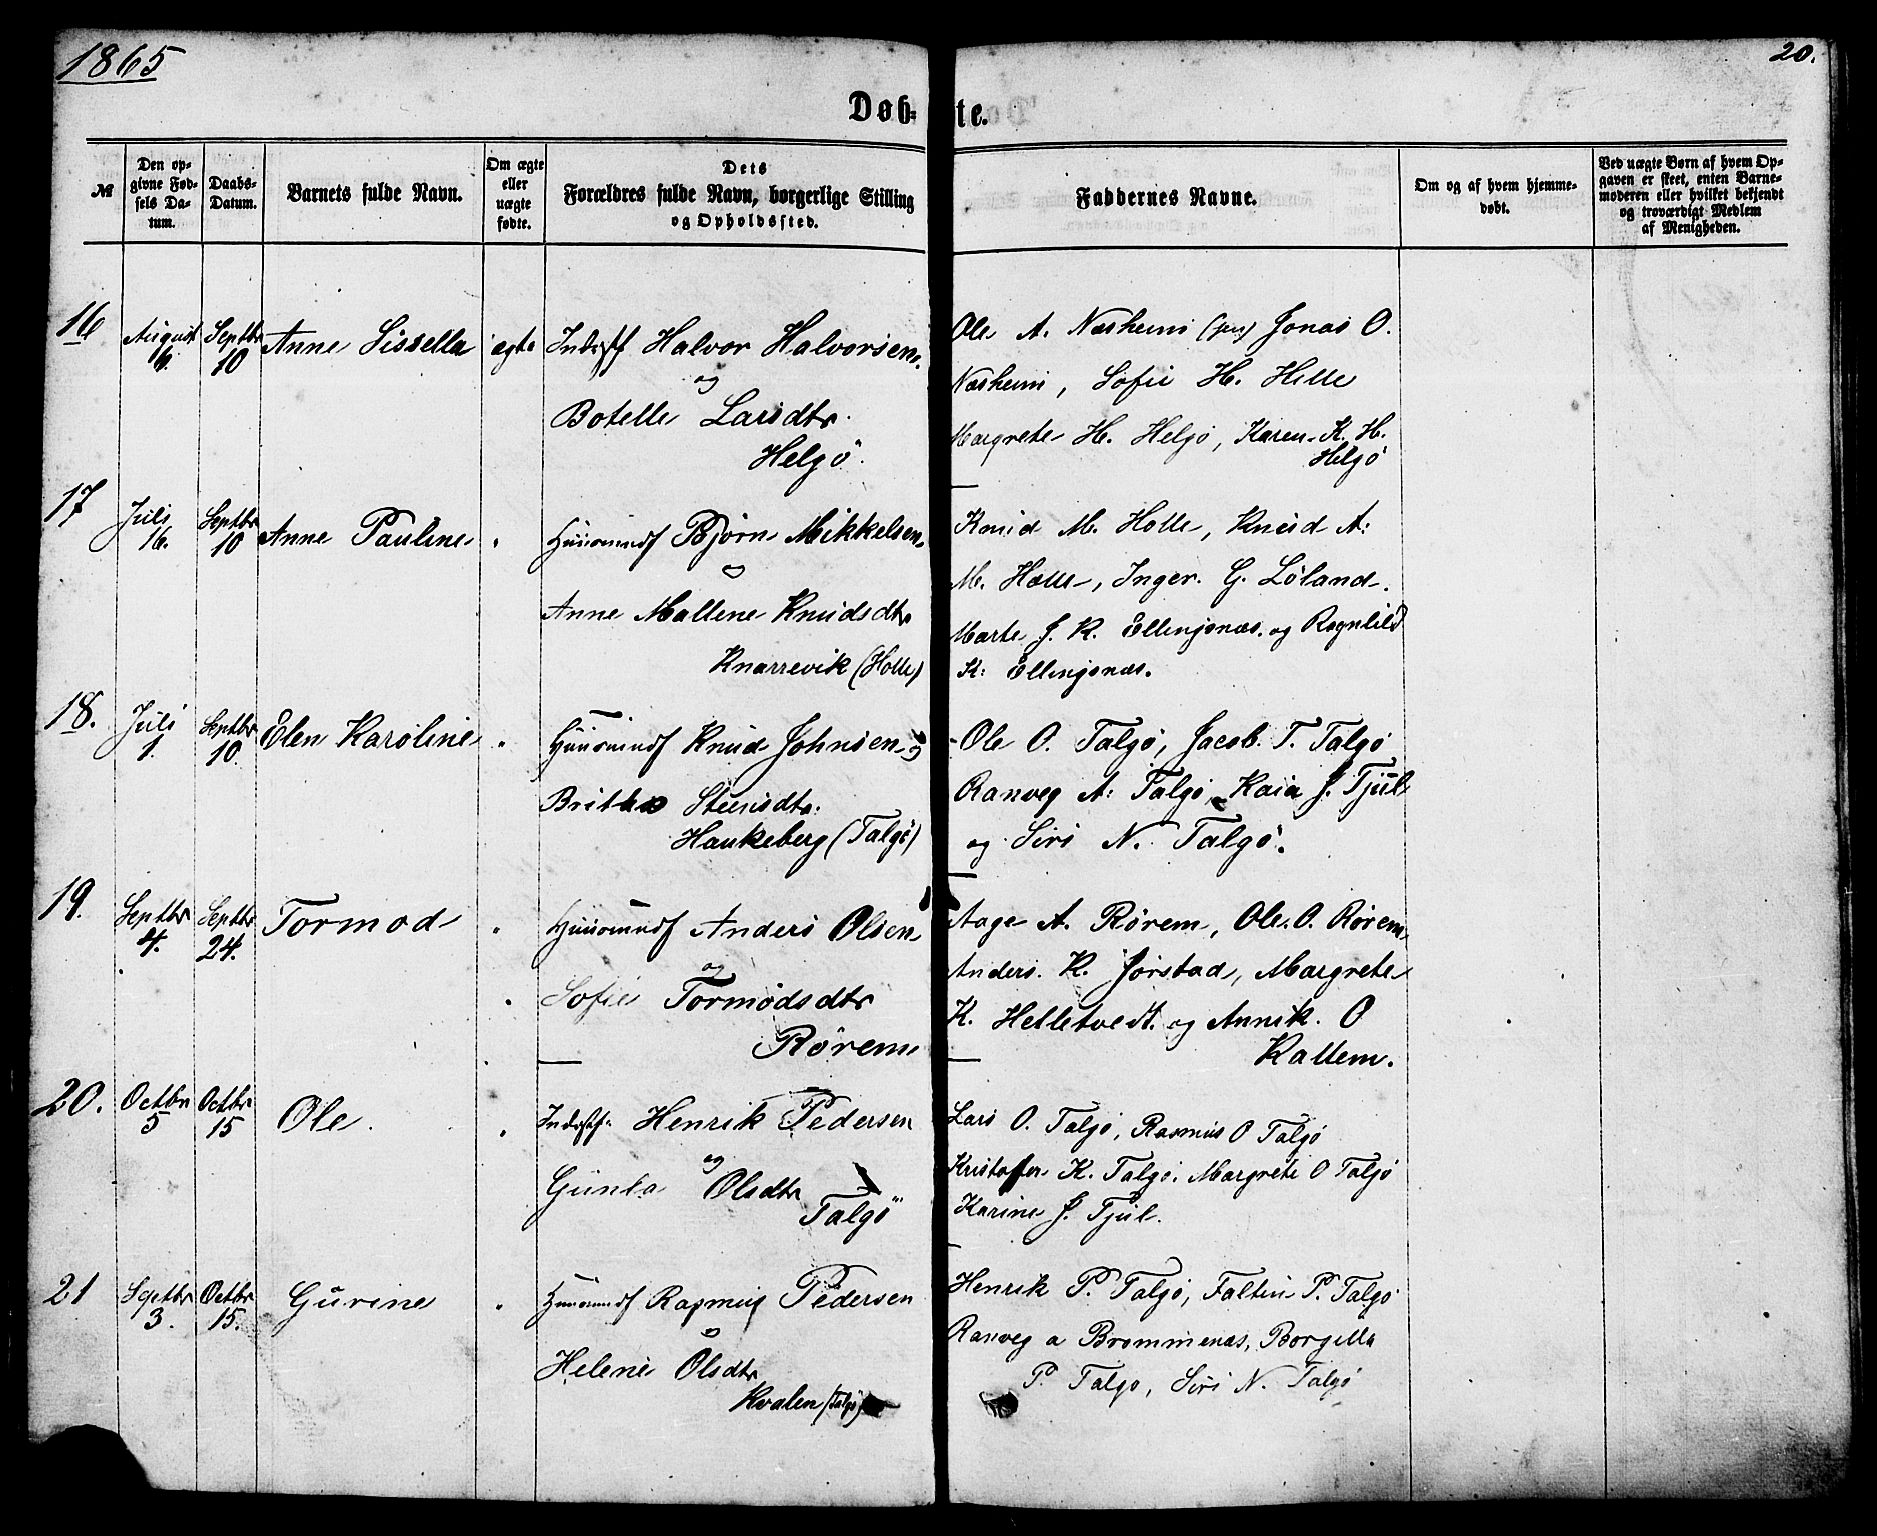 1865
20.
Døb-
te.
№
Den op-
givne Fød-
sels Da-
tum.
Daabs-
Datum.
Barnets fulde Navn.
Om ægte
eller
uægte
fødte.
Dets
Forældres fulde Navn, borgerlige Stilling
og Opholdssted.
Faddernes Navne.
Om og af hvem hjemme-
døbt.
Ved uægte Børn af hvem Op-
gaven er skeet, enten Barne-
moderen eller hvilket bekjendt
og troværdigt Medlem
af Menigheden.
16
August
6.
Septbr
10
Anne Sissella
ægte
Indrstf Halvor Halvorsen
og
Botelle Larsdtr.
Helgö.
Ole A. Næsheim (jun) Jonas O.
Næsheim, Sofie H. Hille
Margrete H. Helgö, Karen K. H.
Helgö
17
Juli
16.
Septbr
10
Anne Pauline
"
Huusmndf Björn Mikkelsen
o
Anne Mallene Knudsdtr
Knarrevik (Holle)
Knud M. Holle, Knud A.
M. Holle, Inger G. Löland.
Marte J. K. Ellingsnæs og Ragnild
K: Ellingsnæs.
18.
Juli
1.
Septbr
10.
Elen Karoline
"
Huusmndf Knud Johnsen og
Brithe Steensdtr.
Haukeberg (Talgö)
Ole O. Talgö, Jacob T. Talgö
Ranveg A: Talgö, Kaia J. Tjul
og Siri N. Talgö.
19.
Septbr
4.
Septbr
24.
Tormod
"
Huusmndf Anders Olsen
og
Sofie Tormodsdtr
Rörem
Aage A. Rörem, Ole O. Rörem
Anders K. Jörstad, Margrete
K. Helletvedt og Annik. O
Kallem.
20.
Octbr
5
Octbr
15
Ole.
"
Indrstf. Henrik Pedersen
og
Gunla Olsdtr
Talgö
Lars O. Talgö, Rasmus O Talgö
Kristoffer K. Talgö. Margrete O Talgö
Karine J. Tjul.
21
Septbr
3.
Octbr
15.
Gurine
"
Huusmndf Rasmus Pedersen
o
Helene Olsdtr
Kvalen (Talgö)
Henrik P. Talgö, Faltin P. Talgö
Ranveg A Brommenæs, Borgilla
P. Talgö, Siri N. Talgö